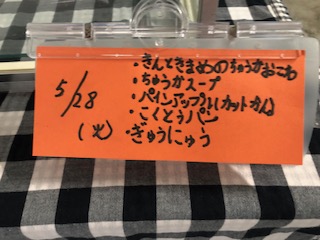 5/28
(火)
・きんときまめのちゅうかおこわ
・ちゅうかスープ
・パインアップル(カットかん)
・こくとうパン
・ぎゅうにゅう